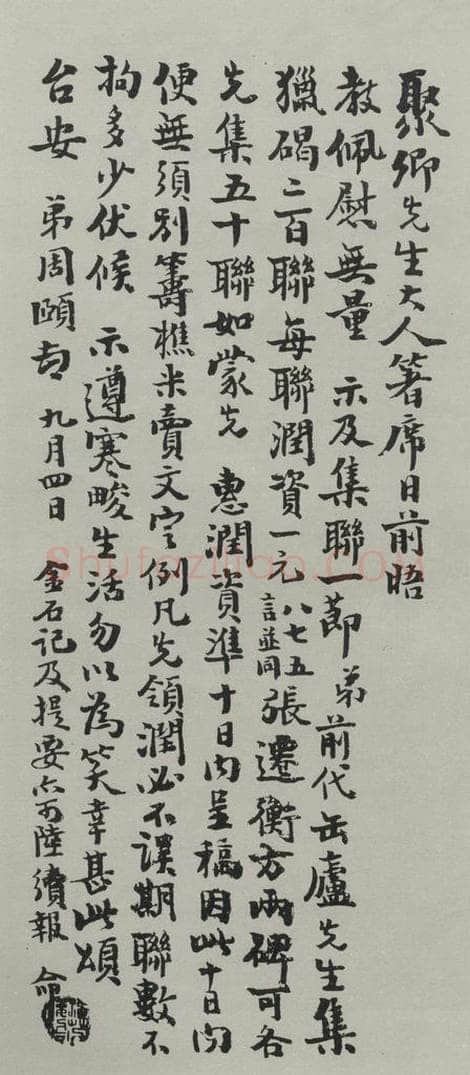 聚卿先生大人箸席日前晤
教佩慰無量 示及集聯一節 弟前代缶廬先生集
獵碣二百聯每聯潤資一元八七五言並同張遷衡方兩碑可各
先集五十聯如蒙先 惠潤資準十日內呈稿因此十日內
便無須別籌樵米賣文定例凡先領潤必不誤期聯數不
拘多少伏候 示遵寒畯生活勿以為笑幸甚此頌
台安 弟周頤頓 九月四日 金石記及提要亦可陸續報 命